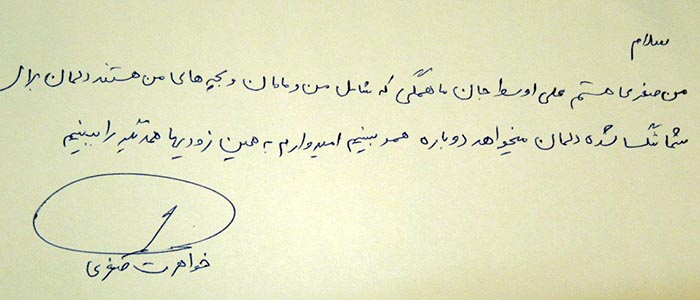 سلام
من صغری هستم علی اوسط جان ما همگی که شامل من و مامان و بچه های من هستند دلمان برای
شما تنگ شده دلمان میخواهد دوباره همدیگر ببینیم امیدوارم به همین زودیها همدیگر را ببینیم
خواهرت صغری